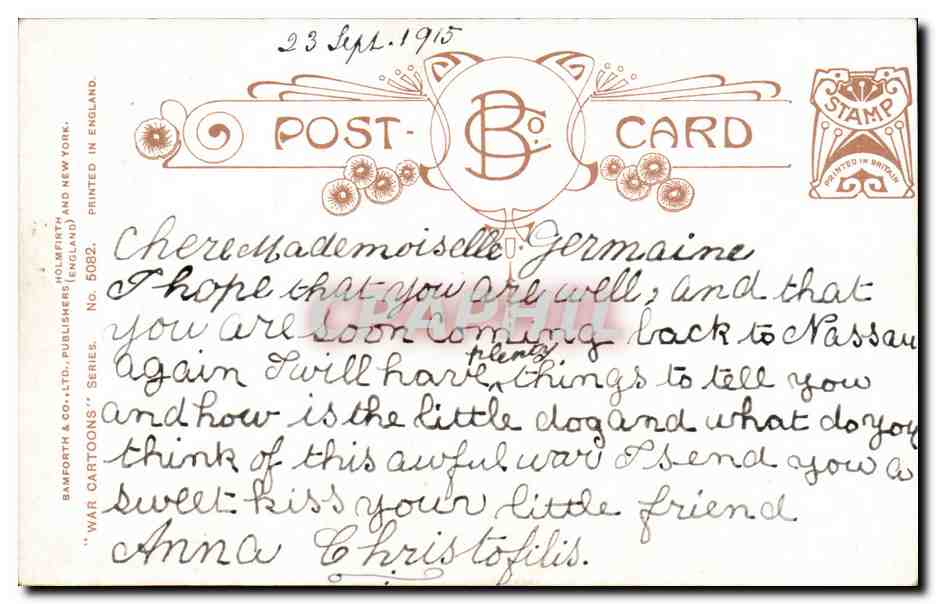 23 Sept. 1915
POST-CARD
B Co.
STAMP
PRINTED IN BRITAIN
Chere Mademoiselle Germaine
I hope that you are well, and that
you are soon coming back to Nassau
again I will have plenty things to tell you
and how is the little dog and what do you
think of this awful war I send you a
sweet kiss your little friend
Anna Christofilis.
BAMFORTH & CO., LTD., PUBLISHERS HOLMFIRTH (ENGLAND) AND NEW YORK.
"WAR CARTOONS" SERIES. No. 5082. PRINTED IN ENGLAND.
CPAPHIL